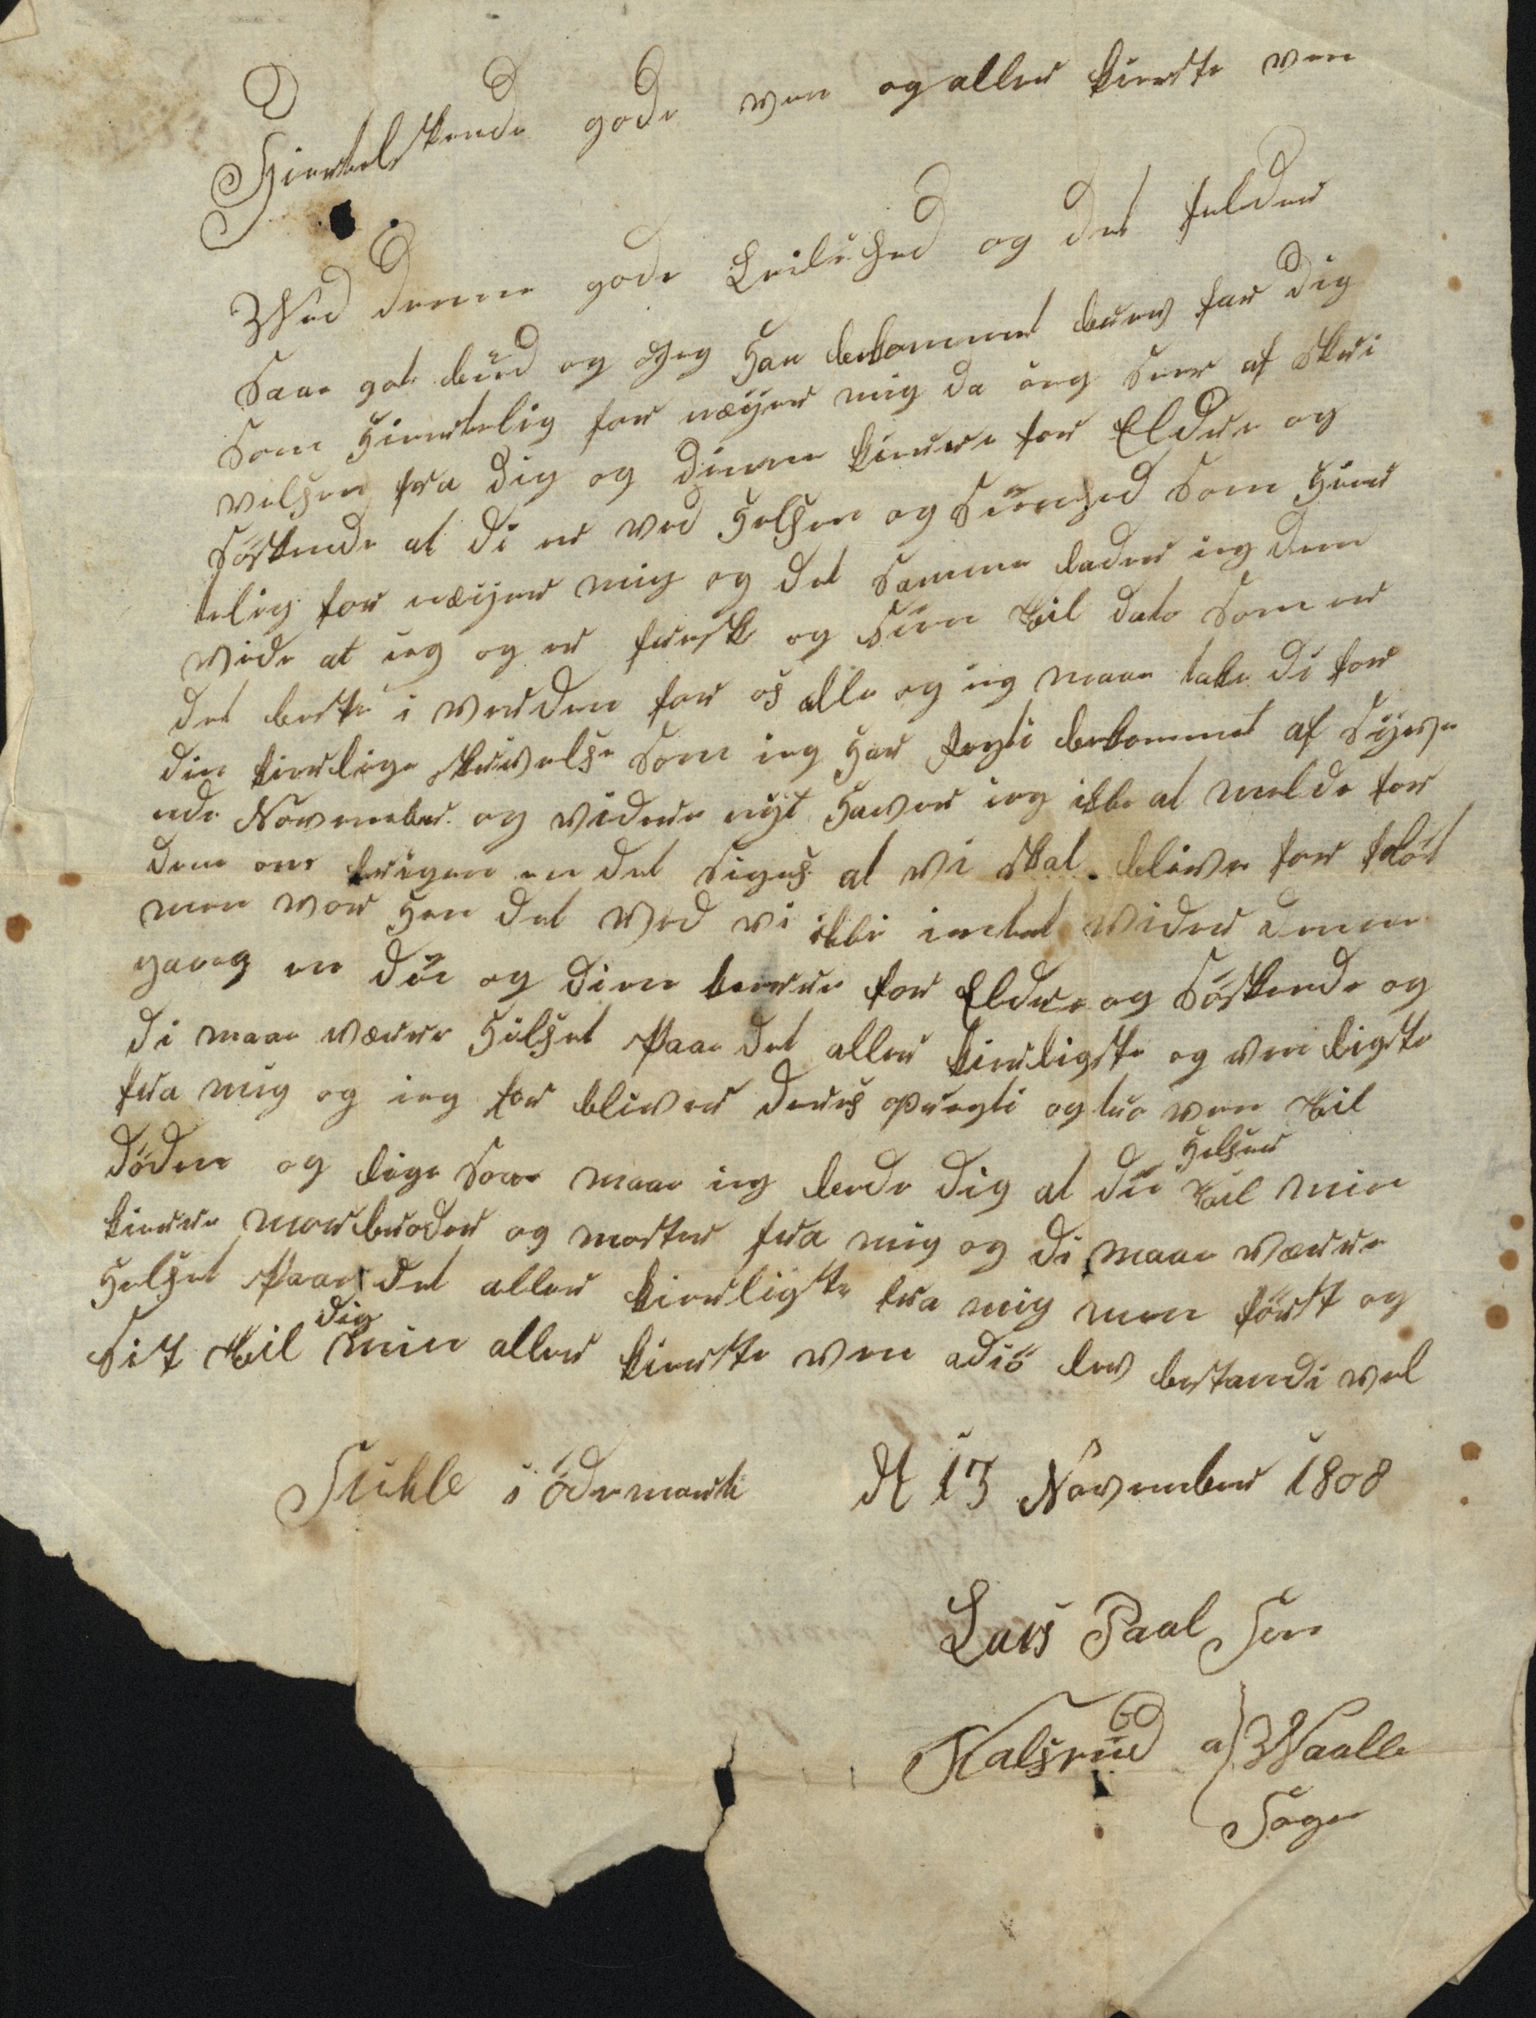 Hiertelskende gode ven og aller kierste ven
Wed denne gode Leiluhed og det felder
Saa got bud og Jeg Har bekommet brev far Dig
Som Hiertelig for næyer mig da ieg Seer af Skri
velsen fra Dig og Dinne kierre for Eldre og
Söskende at Di er ved Helsen og Sunhed Som Hier
telig for næyer mig og det Samme lader ieg dem
vide at ieg og er frersk og Sun til dato Som er
det beste i verden for os alle og ieg maae takke di for
din kierlige skrivelse Som ieg Har regti bekommet af Syve
nde November og videre nyt Haver ieg ikke at melde for
dem om krigen en det Siges at vi skal blive for flöt
men vor Hen det ved vi ikke intet vider denne
gang en du og Dine kierre for Eldre og Söskende og
di maae værre Hilset Paa det aller kierligste og ven ligste
fra mig og ieg for bliver deres opregti og tro ven til
döden og lige Saa maae ieg bede Dig at du Helser til min
kierre morbroder og moster fra mig og di maae værre
Helset Paa det aller kierligste fra mig men först og
Sist til dig min aller kierste ven adiö lev bestandi vel
Suhle i ödemark dt 13 November 1808
Lars Paal Sen
Kalsrud a Waalle
Sogn